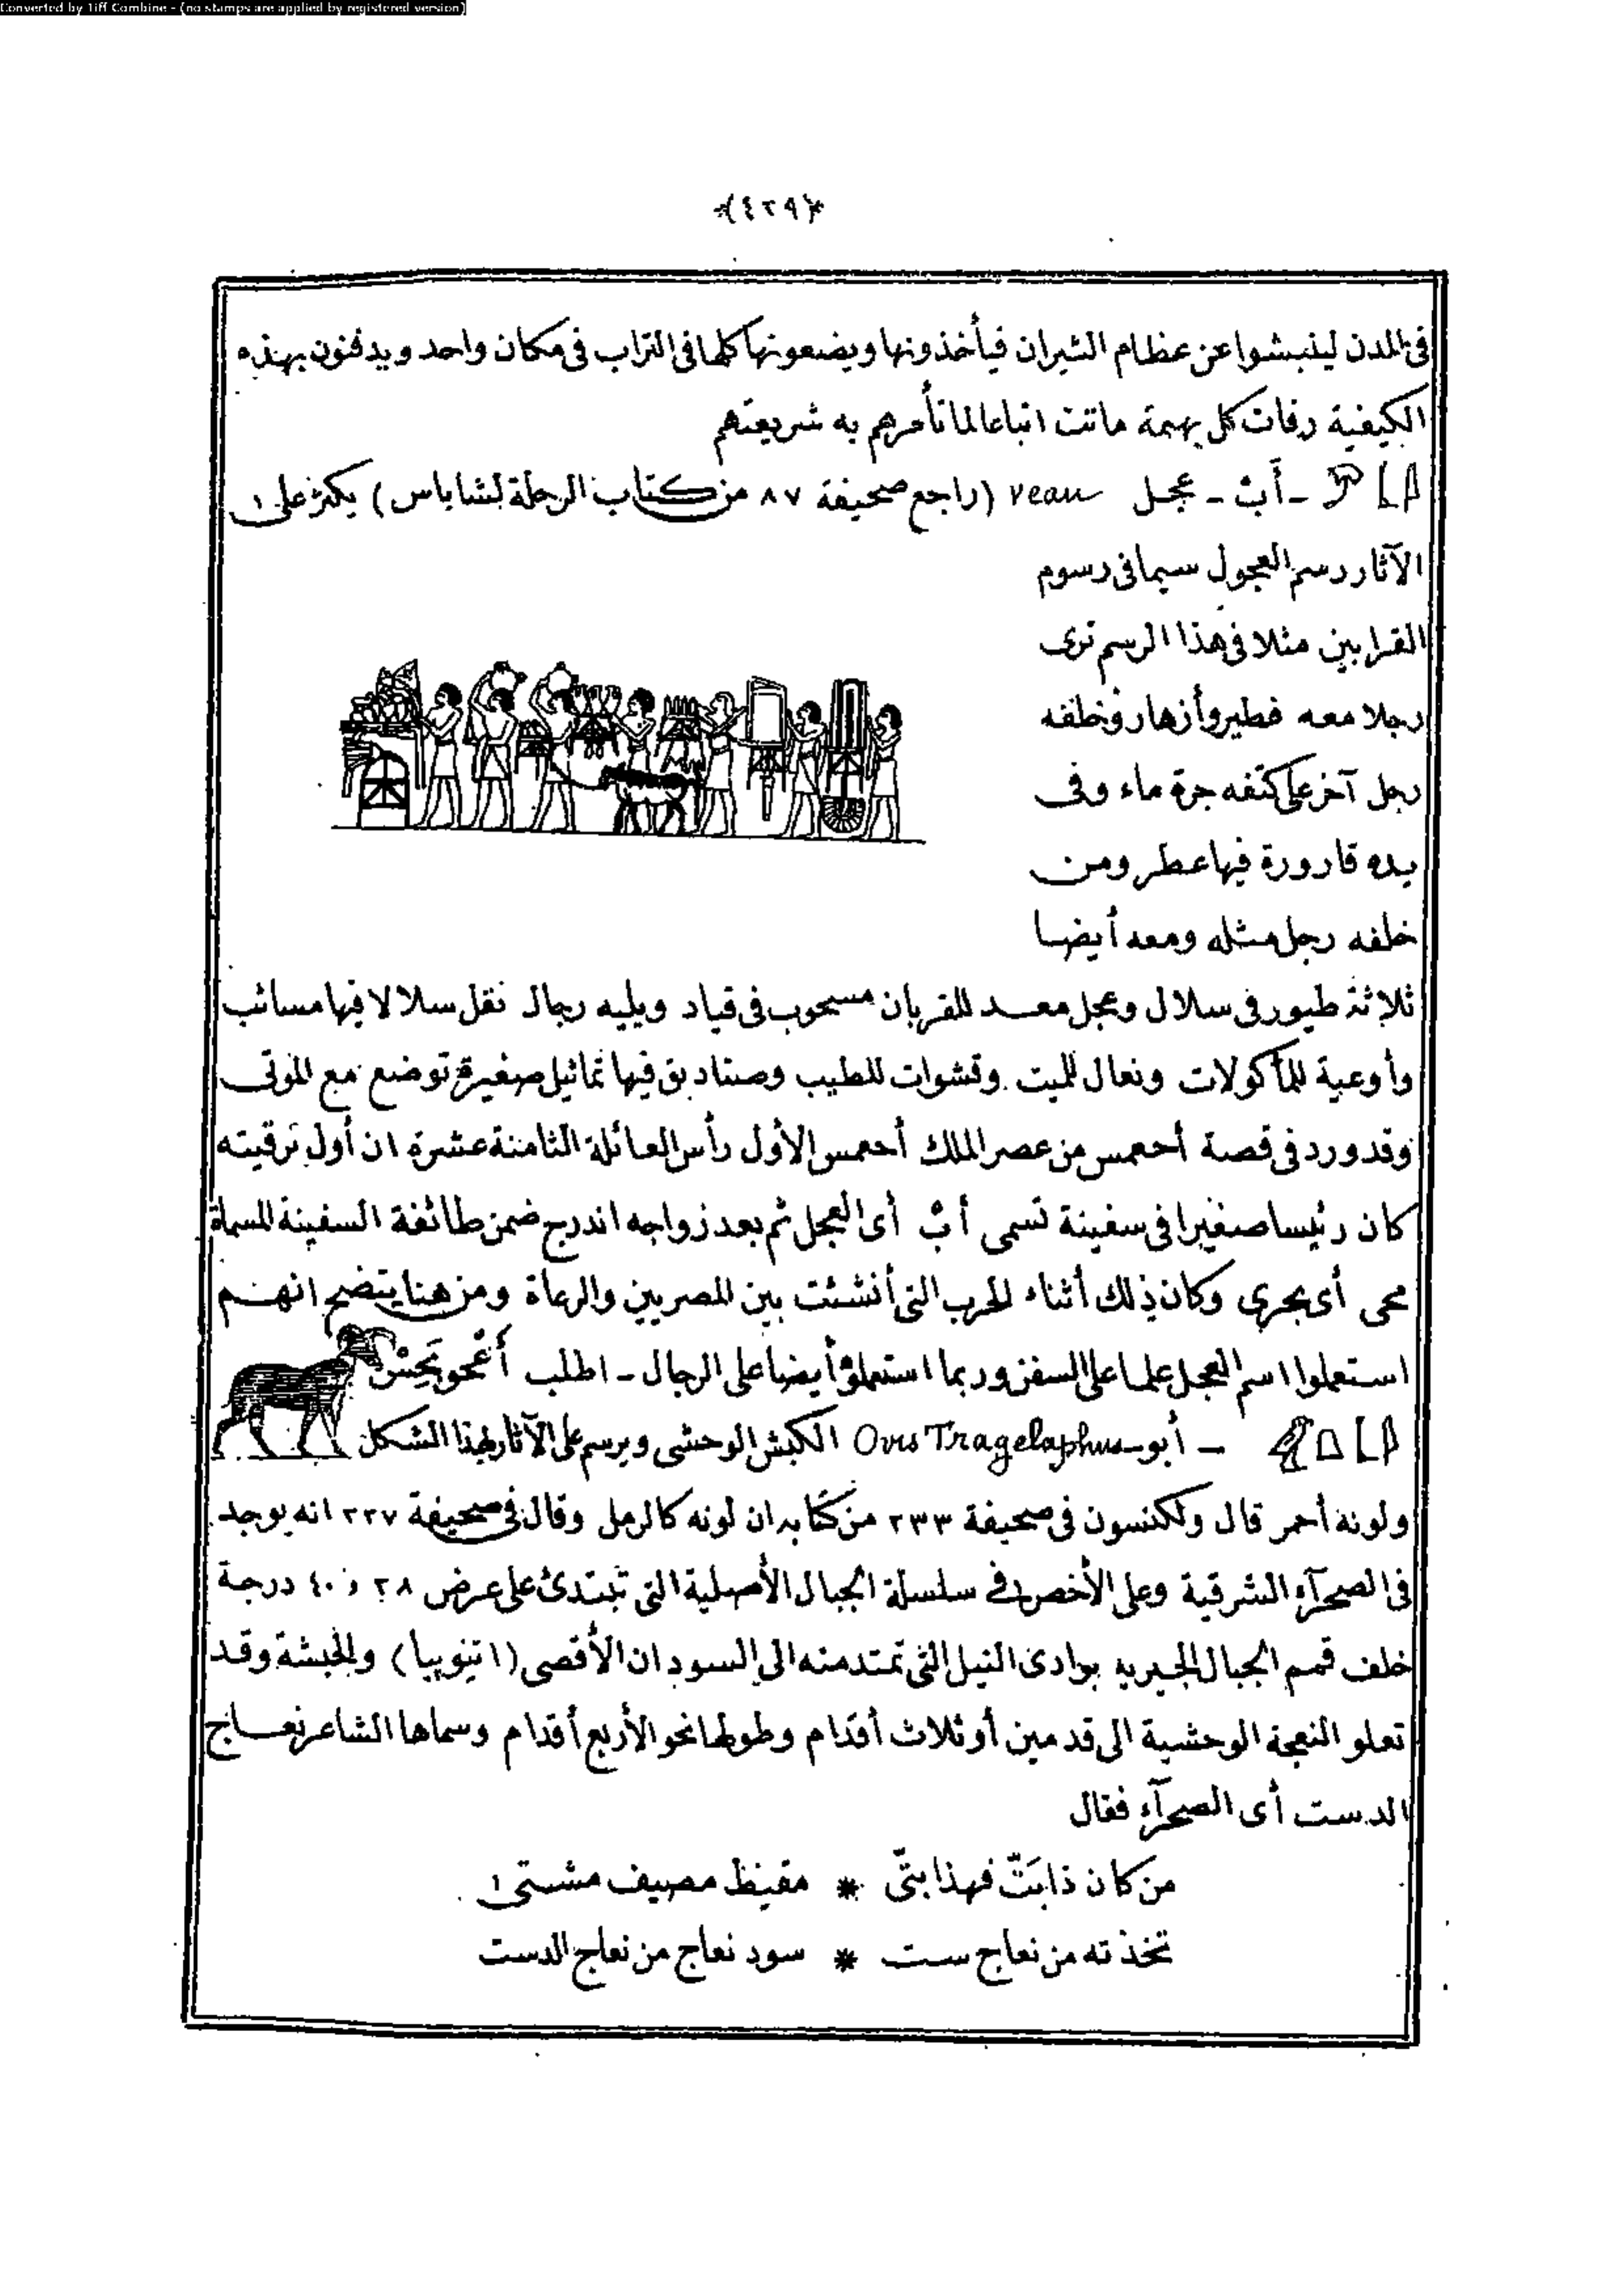 Converted by Tiff Combine - (no stamps are applied by registered version)
﴿٤٢٩﴾
فى المدن لينبشوا عن عظام الثيران فيأخذونها ويضعونها كلها فى التراب فى مكان واحد ويدفنون بهذه
الكيفية رفات كل بهيمة ماتت اتباعا لما تأمرهم به شريعتهم
- أب - عجل veau (راجع صحيفة ٨٧ من كتاب الرحلة لشاباس) يكثر على
الآثار رسم العجول سيما فى رسوم
القرابين مثلا فى هذا الرسم ترى
رجلا معه فطير وأزهار وخلفه
رجل آخر على كتفه جرة ماء وفى
يده قارورة فيها عطر ومن
خلفه رجل مثله ومعه أيضا
ثلاثة طيور فى سلال وعجل معد للقربان مسحوب فى قياد ويليه رجال نقل سلالا فيها مسائب
وأوعية للمأكولات ونعال للميت وقشوات للطيب وصناديق فيها تماثيل صغيرة توضع مع الموتى
وقد ورد فى قصة أحعمس من عصر الملك أحعمس الأول رأس العائلة الثامنة عشرة ان أول ترقيته
كان رئيسا صغيرا فى سفينة تسمى أب أى العجل ثم بعد زواجه اندرج ضمن طائفة السفينة المسماة
محى أى بحرى وكان ذلك أثناء الحرب التى أنشئت بين المصريين والرعاة ومن هنا يتضح انهم
استعملوا اسم العجل علما على السفن وربما استعملوه أيضا على الرجال - اطلب
- أبو - Ovis Tragelaphus الكبش الوحشى ويرسم على الآثار بهذا الشكل
ولونه أحمر قال ولكنسون فى صحيفة ٢٣٣ من كتابه ان لونه كالرمل وقال فى صحيفة ٢٢٧ انه يوجد
فى الصحرآء الشرقية وعلى الأخص فى سلسلة الجبال الأصلية التى تبتدئ على عرض ٢٨ و ٤٠ درجة
خلف قمم الجبال الجيرية بوادى النيل التى تمتد منه الى السودان الأقصى (اتيوبيا) والحبشة وقد
تعلو النعجة الوحشية الى قدمين أو ثلاث أقدام وطولها نحو الأربع أقدام وسماها الشاعر نعاج
الدست أى الصحرآء فقال
من كان ذا بَتّ فهذا بتّى * مقيظ مصيف مشتى
تخذته من نعاج ست * سود نعاج من نعاج الدست